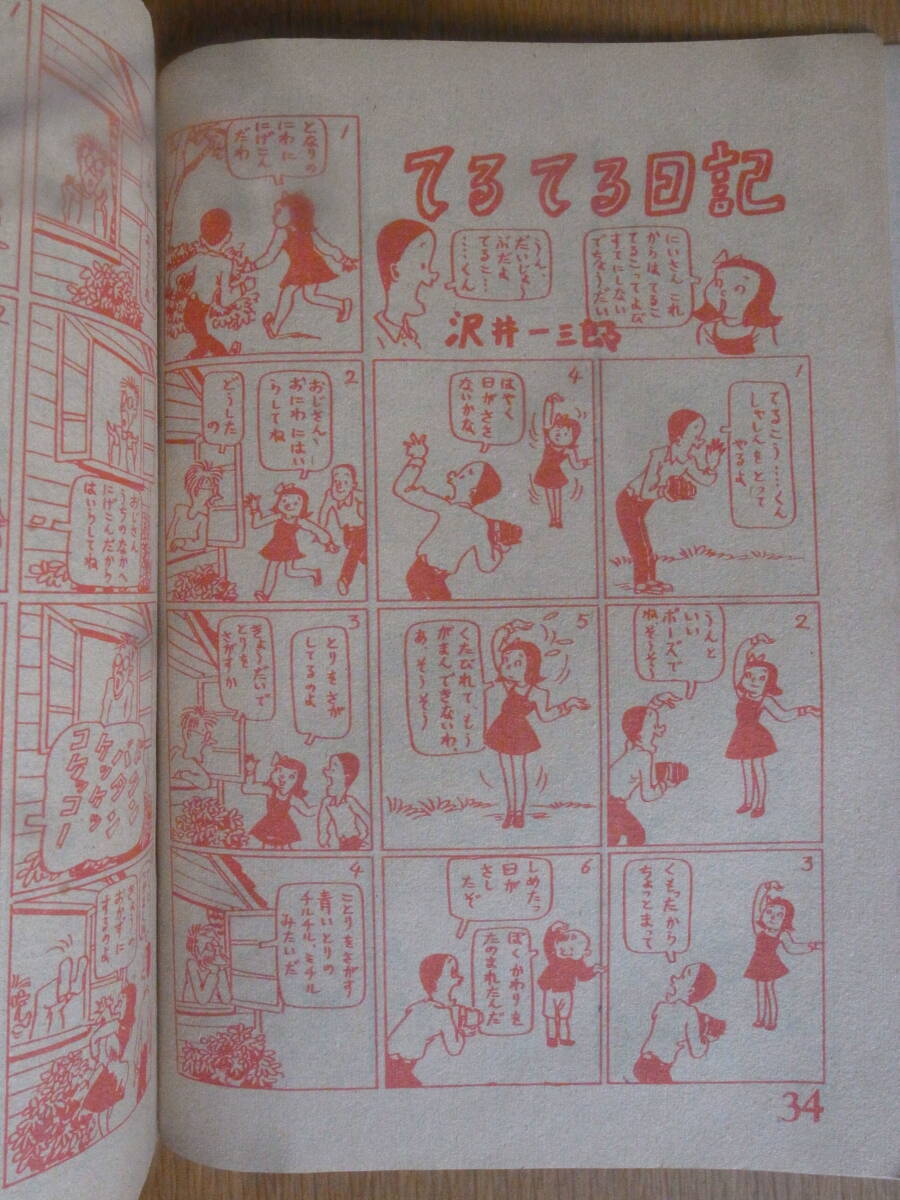 てるてる日記
にいさん これ
からは、てるこ
てるこってよび
すてにしない
でちょうだい
うん、
だいじょう
ぶだよ
てるこ…
……くん
沢井一三郎
1
てるこう……くん
しゃしんをとって
やるよ
2
うんと
いい
ポーズで
ねそうそう
3
くもったから
ちょっとまって
4
はやく
日がささ
ないかな
5
くたびれて、もう
がまんできないわ、
あ、そうそう
6
しめたっ
日が
さし
たぞ
ぼくかわりを
たのまれたんだ
1
となりの
にわに
にげこん
だわ
2
おじさん、
おにわにはい
らしてね
どうした
の
3
とりをさが
してるのよ
きょうだいで
とりを
さがすか
4
ことりをさがす
青いとりの
チルチル、ミチル
みたいだ
おじさん
うちのなかへ
にげこんだから
はいらしてね
バタン
ケッケッ
コケッコー
おかずに
するのよ
34